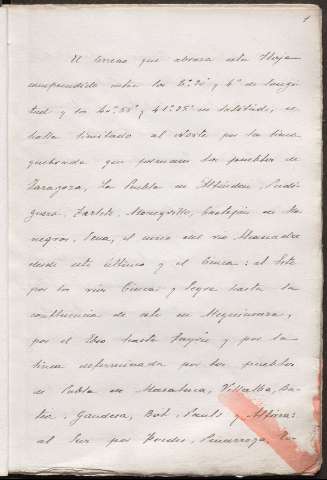 1
El terreno que abraza esta Hoja
comprendido entre los 3º.20' y 4º de longi-
tud y los 40º.55' y 41º.35' de latitud, se
halla limitado al Norte por la linea
quebrada que forman los pueblos de
Zaragoza, La Puebla de Alfinden, Perdi-
guera, Farlete, Monegrillo, Castejon de Mo-
negros, Pena, el curso del rio Alcanadre
desde este último y el Cinca: al Este
por los rios Cinca y Segre hasta la
confluencia de este en Mequinenza,
por el Ebro hasta Fayón y por la
linea determinada por los pueblos
de Pobla de Masaluca, Villalba, Ba-
tea, Gandesa, Bot, Pauls y Alfara:
al Sur por Peñarroya,